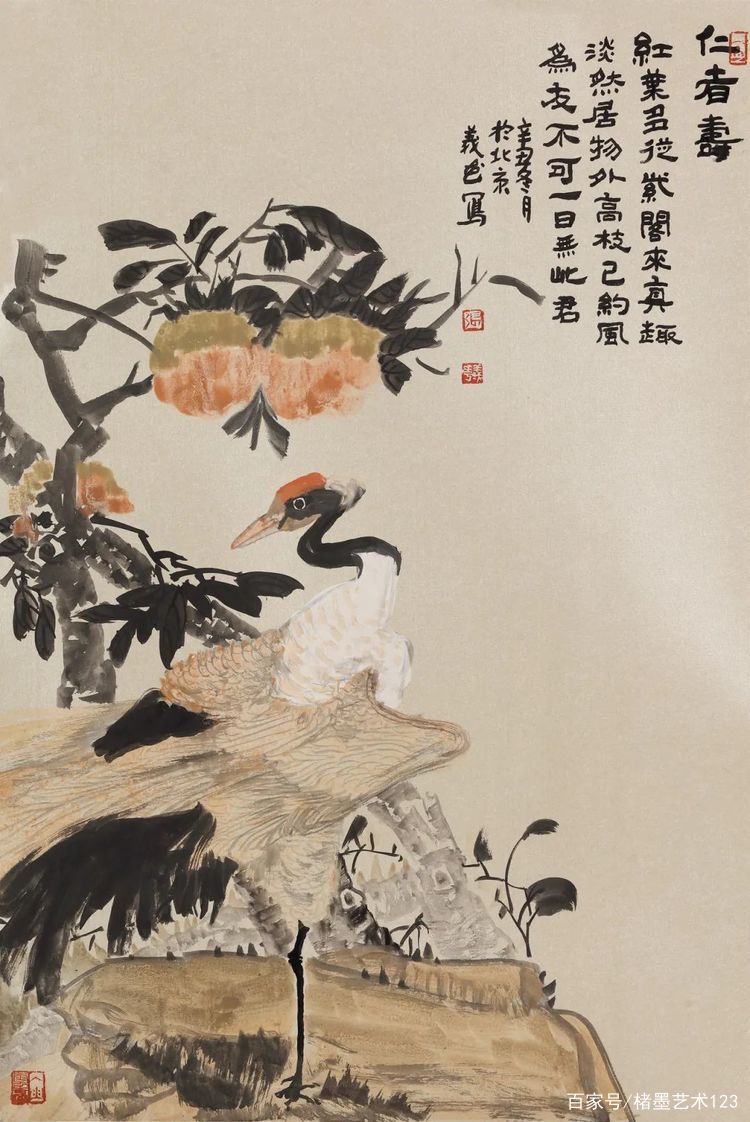 仁者壽
紅葉多從紫閣來真趣
淡然居物外高枝已約風
為友不可一日無此君
辛丑冬月
於北京
義
寫
張
百家号/楮墨艺术123